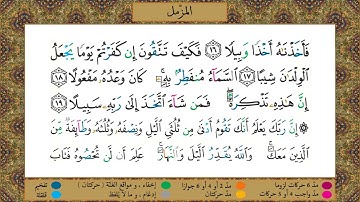 المزمل
فَأَخَذْنَٰهُ أَخْذًا وَبِيلًا ١٦ فَكَيْفَ تَتَّقُونَ إِن كَفَرْتُمْ يَوْمًا يَجْعَلُ
ٱلْوِلْدَٰنَ شِيبًا ١٧ ٱلسَّمَآءُ مُنفَطِرٌۢ بِهِۦ كَانَ وَعْدُهُۥ مَفْعُولًا ١٨
إِنَّ هَٰذِهِۦ تَذْكِرَةٌ فَمَن شَآءَ ٱتَّخَذَ إِلَىٰ رَبِّهِۦ سَبِيلًا ١٩
إِنَّ رَبَّكَ يَعْلَمُ أَنَّكَ تَقُومُ أَدْنَىٰ مِن ثُلُثَىِ ٱلَّيْلِ وَنِصْفَهُۥ وَثُلُثَهُۥ وَطَآئِفَةٌ مِّنَ
ٱلَّذِينَ مَعَكَ وَٱللَّهُ يُقَدِّرُ ٱلَّيْلَ وَٱلنَّهَارَ عَلِمَ أَن لَّن تُحْصُوهُ فَتَابَ
مد ٦ حركات لزوما مد ٢ أو ٤ أو ٦ جوازا إخفاء، و مواقع الغنة (حركتان) تفخيم
مد واجب ٤ أو ٥ حركات مد حركتان إدغام، و ما لا يلفظ قلقلة